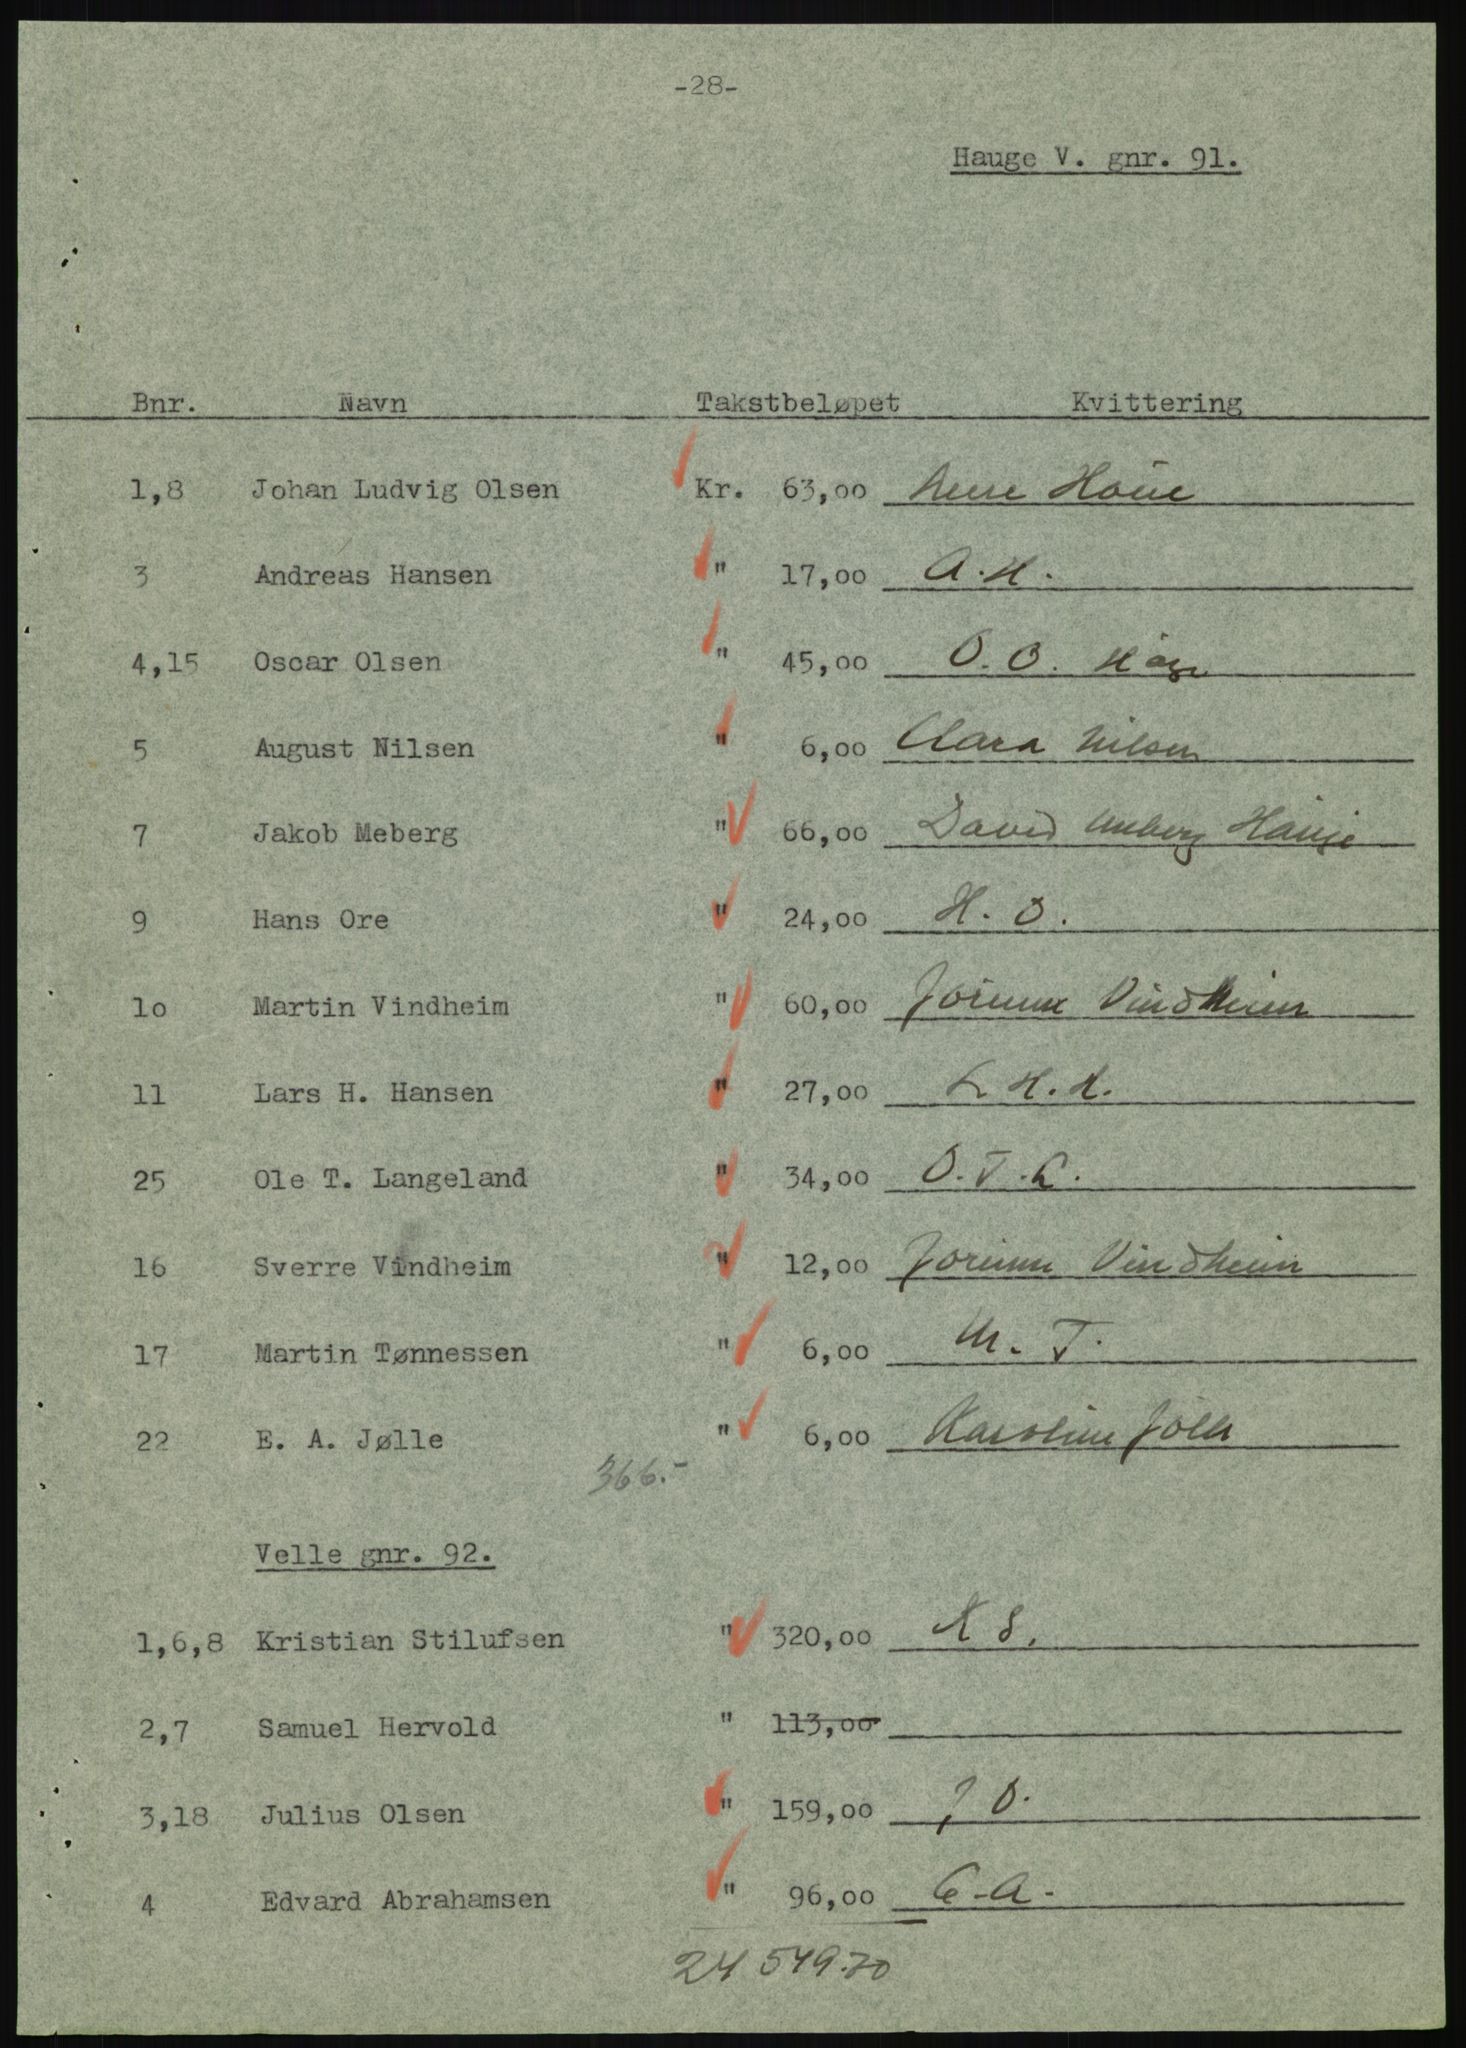 -28-
Hauge V. gnr. 91.
Bnr. Navn Takstbeløpet Kvittering
1,8 Johan Ludvig Olsen Kr. 63,00
3 Andreas Hansen " 17,00 A.H.
4,15 Oscar Olsen " 45,00 O.O.
5 August Nilsen " 6,00 Clara Nilsen
7 Jakob Meberg " 66,00 David Meberg Hauge
9 Hans Ore " 24,00 H.O.
1o Martin Vindheim " 60,00 Jorunn Vindheim
11 Lars H. Hansen " 27,00 L H.H.
25 Ole T. Langeland " 34,00 O.T.L.
16 Sverre Vindheim " 12,00 Jorunn Vindheim
17 Martin Tønnessen " 6,00 M. T.
22 E. A. Jølle " 6,00 Karoline Jölle
366.-
Velle gnr. 92.
1,6,8 Kristian Stilufsen " 320,00 K S.
2,7 Samuel Hervold " 113,00
3,18 Julius Olsen " 159,00 J O.
4 Edvard Abrahamsen " 96,00 E.A.
24 549.70